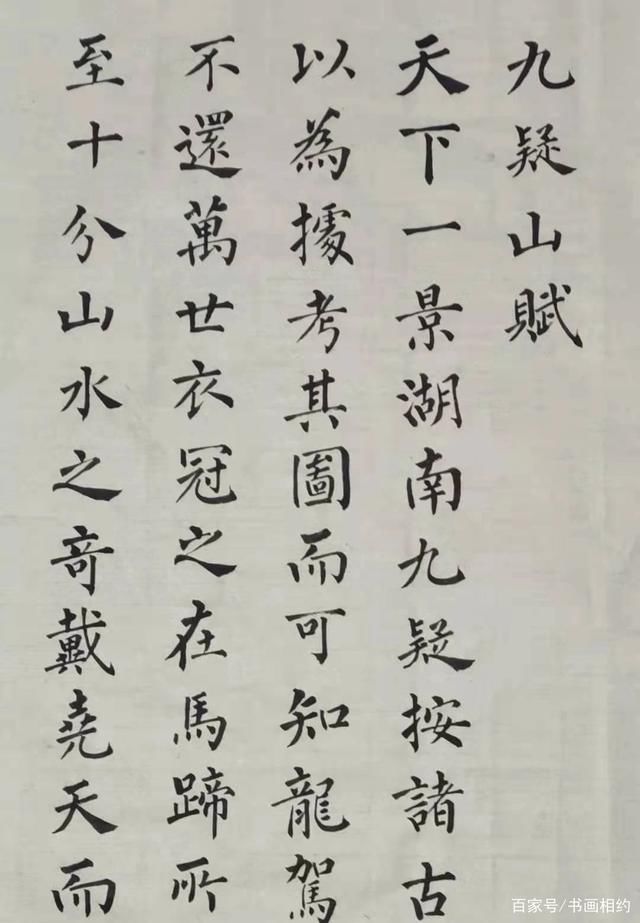 九疑山賦
天下一景湖南九疑按諸古
以為據考其圖而可知龍駕
不還萬世衣冠之在馬蹄所
至十分山水之奇戴堯天而
百家号/书画相约